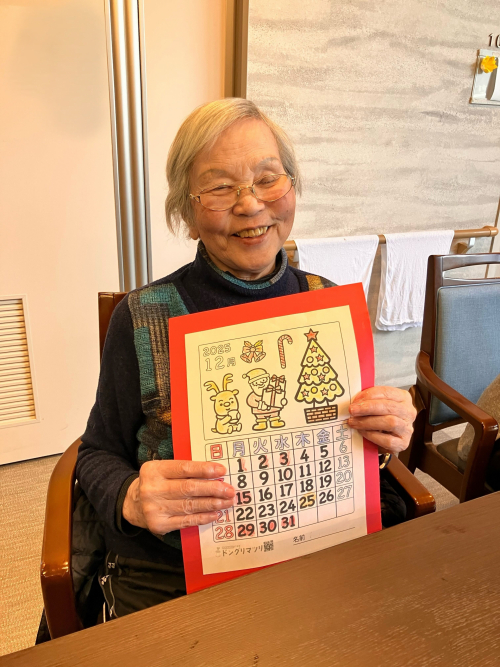 10
2025
12月
日 月 火 水 木 金 土
1 2 3 4 5 6
7 8 9 10 11 12 13
14 15 16 17 18 19 20
21 22 23 24 25 26 27
28 29 30 31
ドングリマツリ
名前